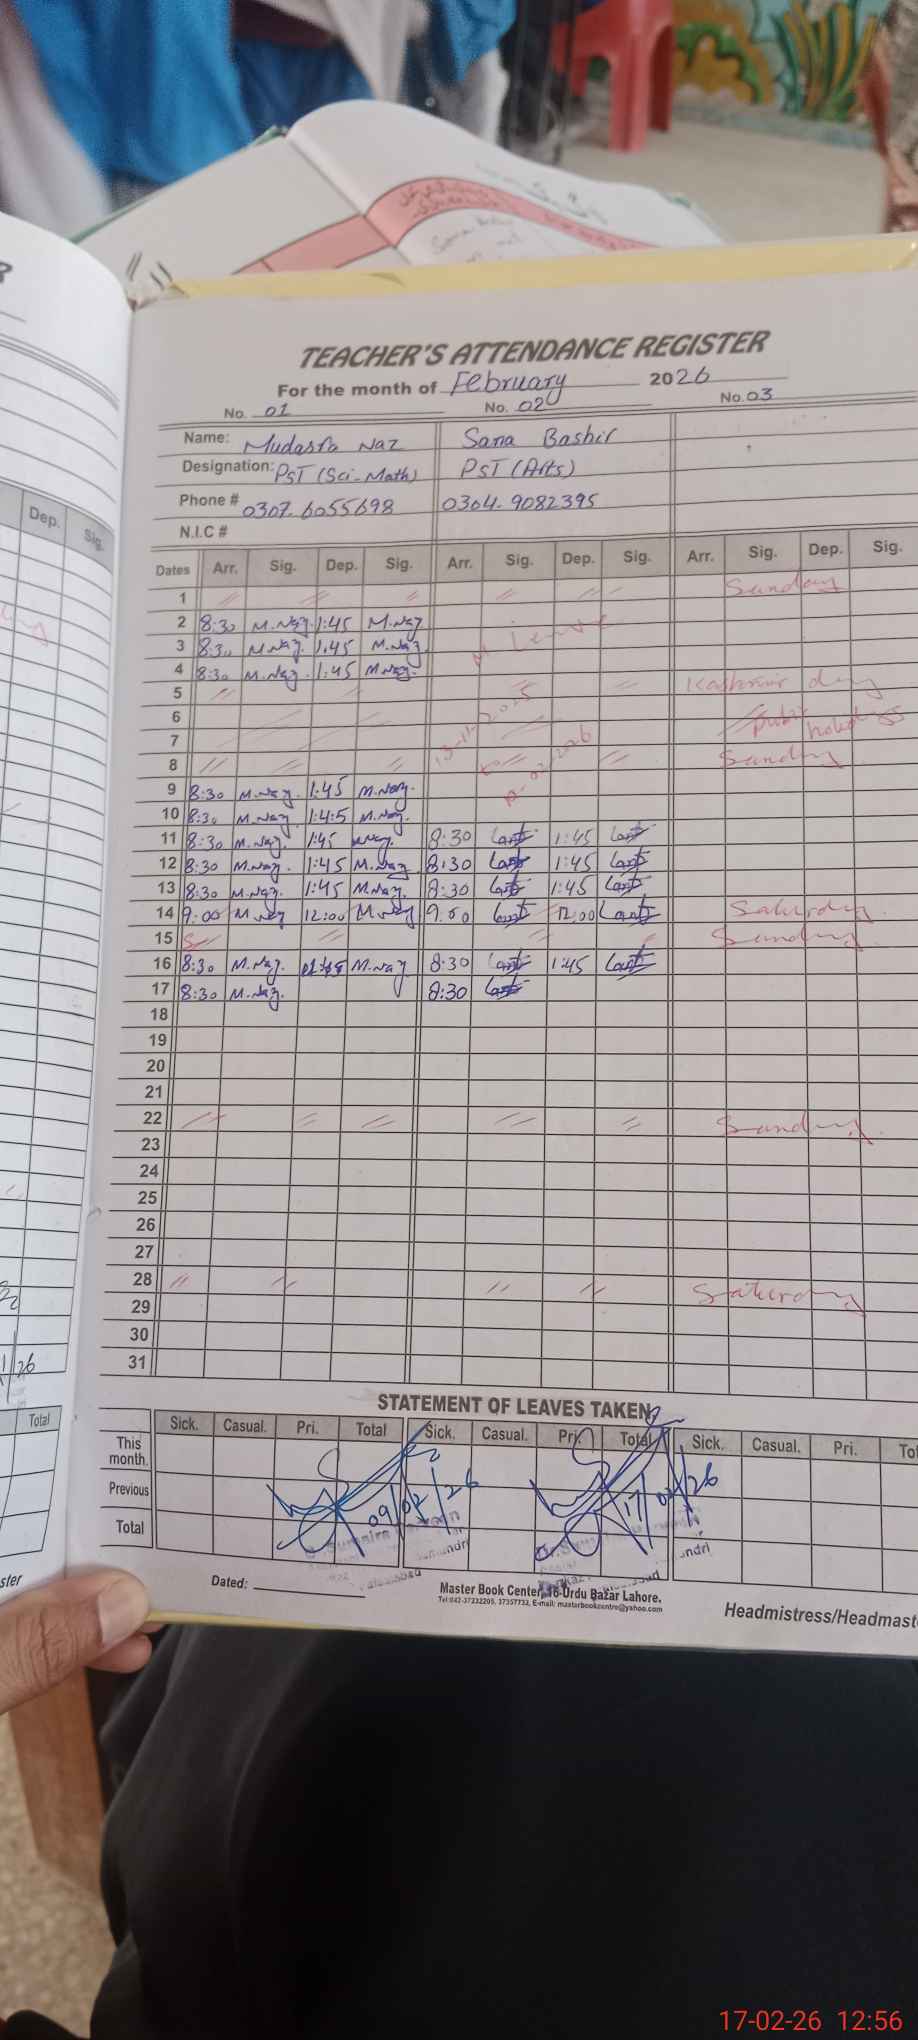 TEACHER'S ATTENDANCE REGISTER
For the month of February 2026
No. 01 No. 02 No. 03
Name: Mudasra Naz Sana Bashir
Designation: PST (Sci-Math) PST (Arts)
Phone # 0307-6055698 0304-9082395
N.I.C #
Dep. Sig.
Dates Arr. Sig. Dep. Sig. Arr. Sig. Dep. Sig. Arr. Sig. Dep. Sig.
1 Sunday
2 8:30 M.Naz. 1:45 M.Naz
3 8:30 M.Naz. 1:45 M.Naz. M. Leave
4 8:30 M.Naz. 1:45 M.Naz.
5 Kashmir day
6 13-11-2025 Public holidays
7
8 to Sunday
9 8:30 M.Naz. 1:45 M.Naz.
10 8:30 M.Naz. 1:4:5 M.Naz.
11 8:30 M.Naz. 1:45 M.Naz. 8:30 1:45
12 8:30 M.Naz. 1:45 M.Naz 8:30 1:45
13 8:30 M.Naz. 1:45 M.Naz. 8:30 1:45
14 9:00 M.Naz 12:00 M.Naz 9:00 12:00 Saturday
15 Sunday
16 8:30 M.Naz. M.Naz 8:30 1:45
17 8:30 M.Naz. 8:30
18
19
20
21
22 Sunday
23
24
25
26
27
28 Saturday
29
30
31
STATEMENT OF LEAVES TAKEN
Total
Sick. Casual. Pri. Total Sick. Casual. Pri. Total Sick. Casual. Pri.
This month.
Previous 09/02/26 17/02/26
Total
Dated:
Master Book Center, 18-Urdu Bazar Lahore.
Tel:042-37232205, 37357732, E-mail: masterbookcentre@yahoo.com
Headmistress/Headmast
17-02-26 12:56